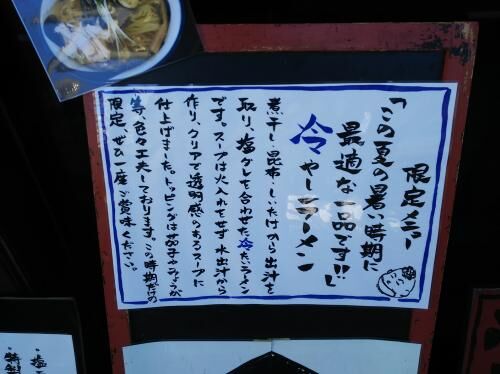 限定メニュー
「この夏の暑い時期に
最適な一品です!!」
冷やしラーメン
煮干し・昆布・しいたけから出汁を
取り、塩ダレを合わせた冷たいラーメン
です。スープは火入れをせず水出汁から
作り、クリアで透明感のあるスープに
仕上げました。トッピングは茄子やみょうが
等、色々工夫しております。この時期だけの
限定、ぜひ一度ご賞味ください。
塩
特製